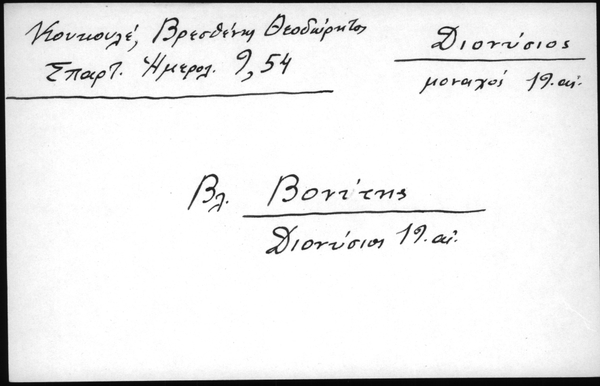 Κουκουλέ, Βρεσθένης Θεοδώρητος
Σπαρτ. Ημερολ. 9, 54
Διονύσιος
μοναχός 19. αι.
Βλ. Βονίτης
Διονύσιος 19. αι.